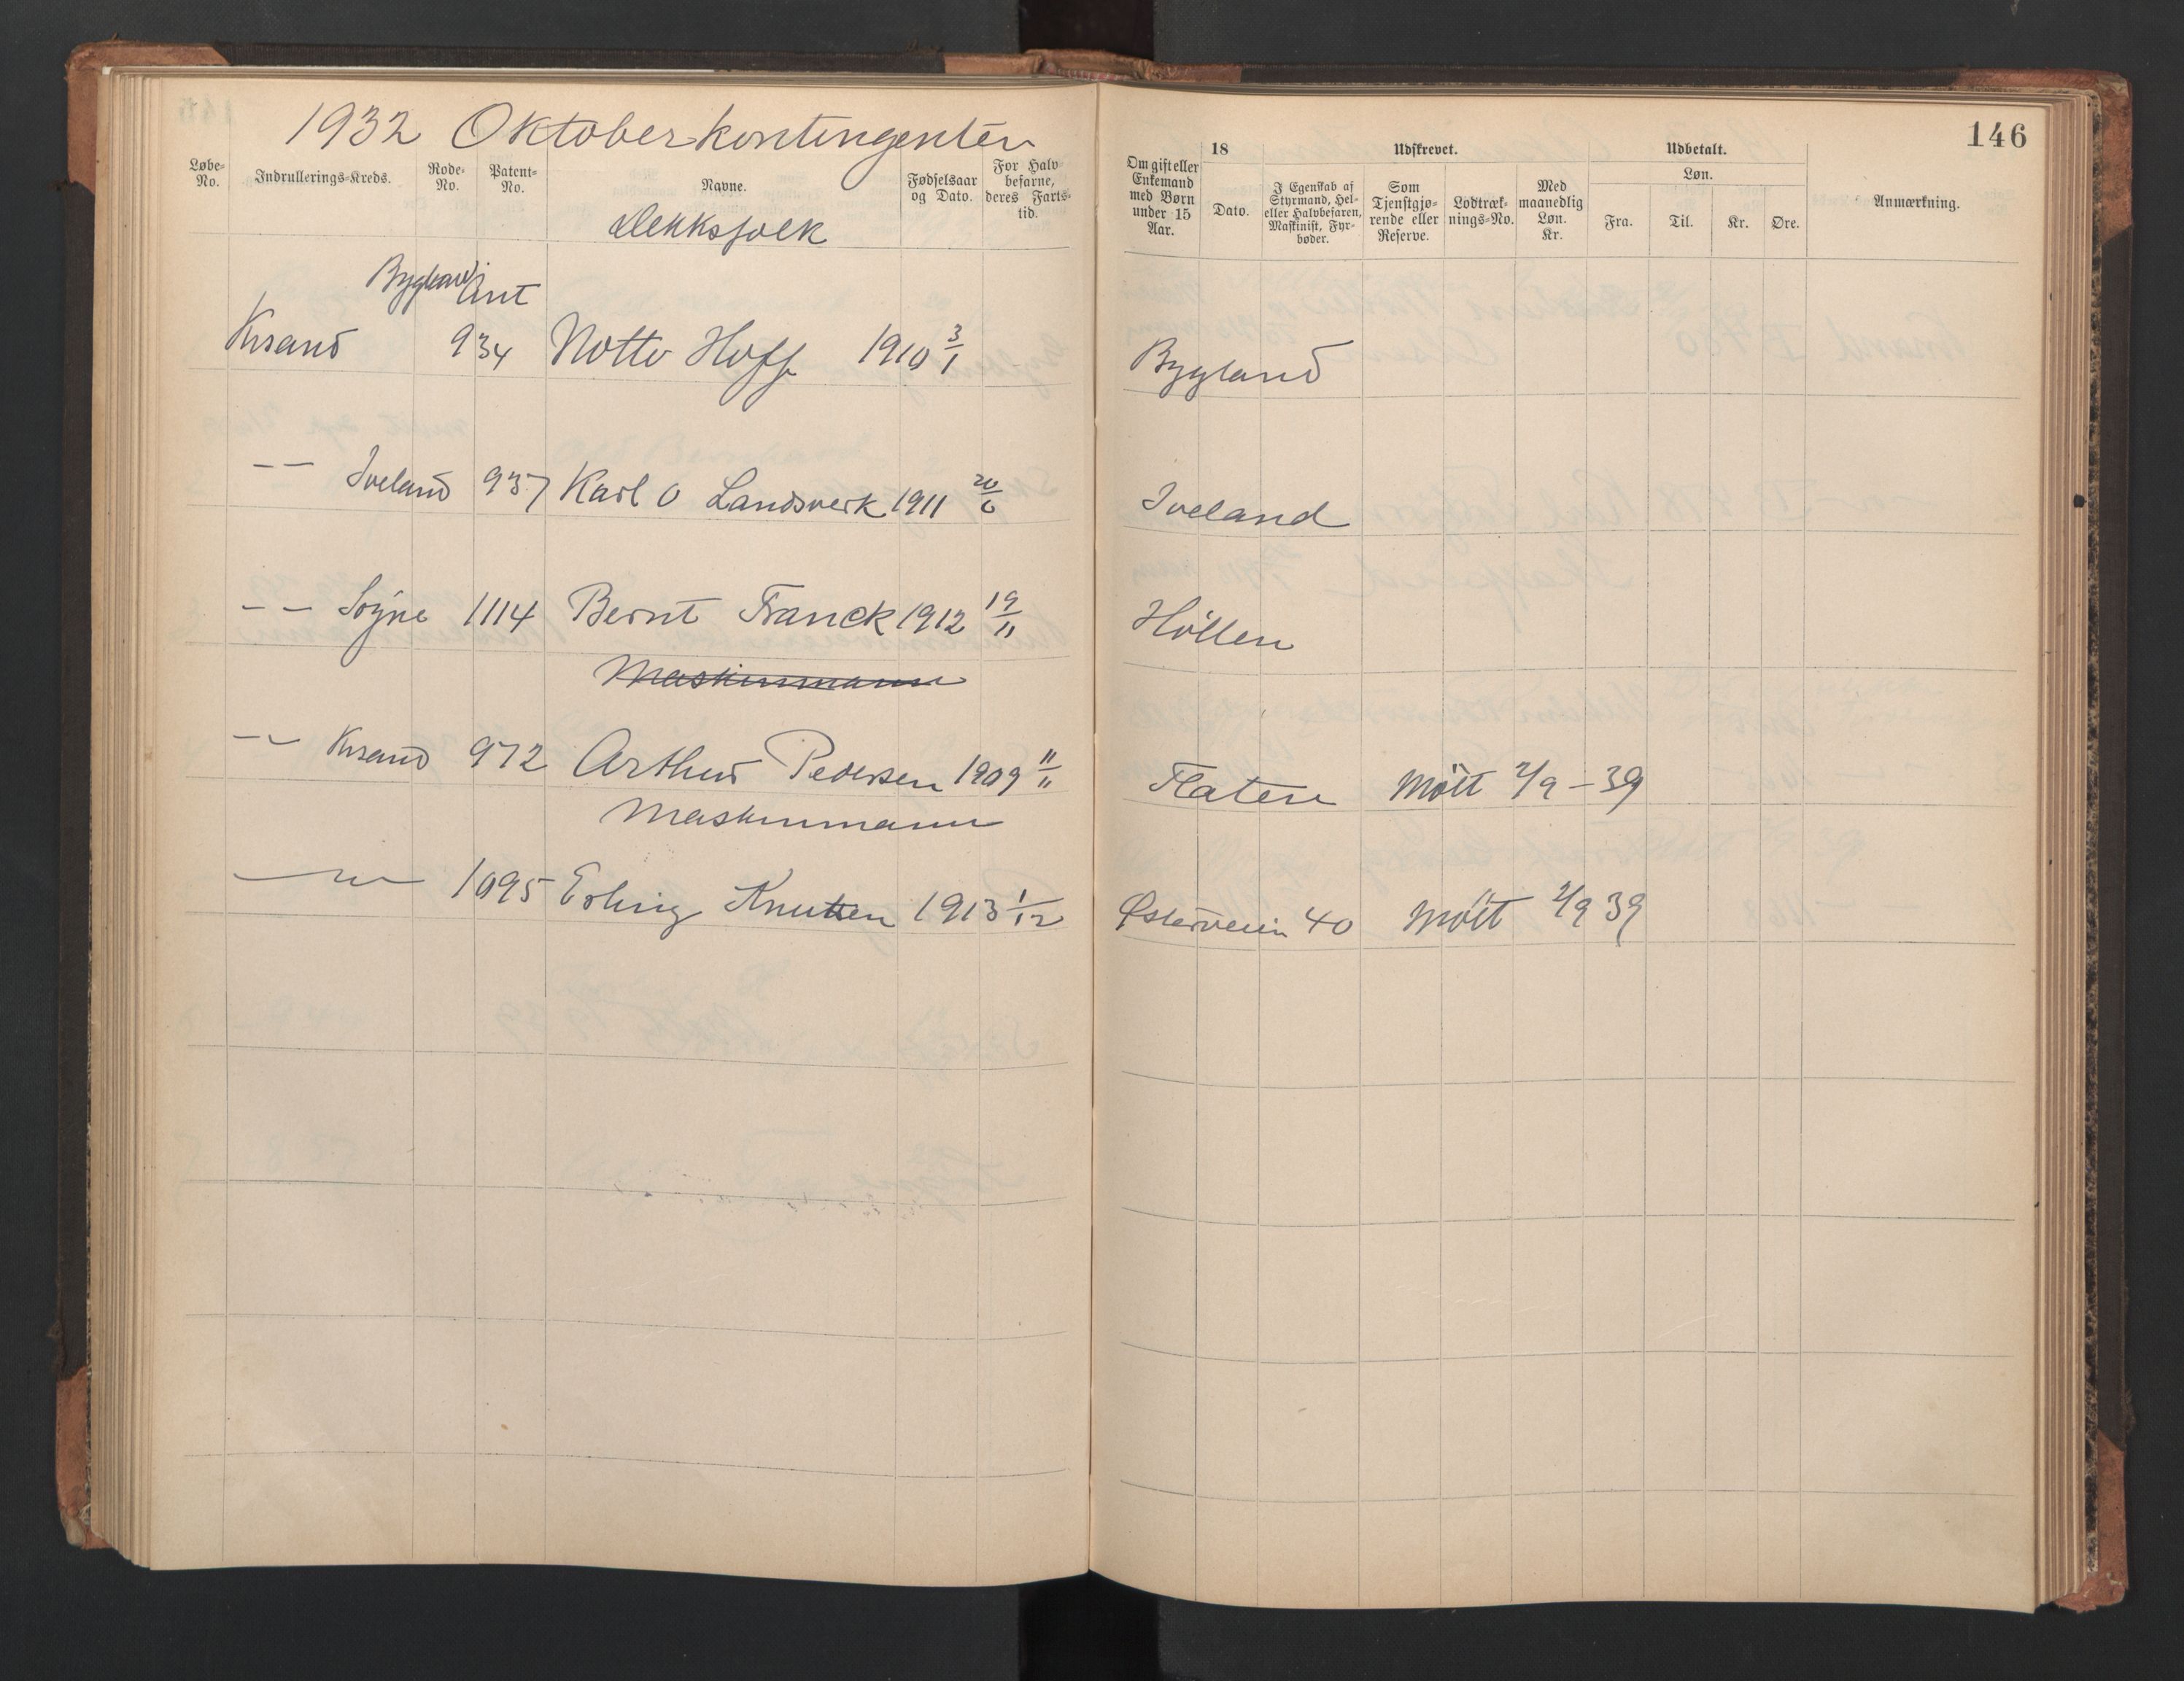 1932 Oktoberkontingenten
Løbe-No. Indrullerings-Kreds. Rode-No. Patent-No. Navne. Fødselsaar og Dato. For Halvbefarne, deres Fartstid.
Dekksfolk
Bygland
Krsand 934 Notto Hoff 1910 3/1
-- Iveland 937 Karl O Landsverk 1911 20/6
-- Søgne 1114 Bernt Franck 1912 19/11
Maskinmann
-- Krsand 972 Arthur Pedersen 1909 11/11
Maskinmann
1095 Erling Knutsen 1913 1/12
146
Om gift eller Enkemand med Børn under 15 Aar. 18 Dato. Udskrevet. I Egenskab af Styrmand, Hel- eller Halvbefaren, Maskinist, Fyrbøder. Som Tjenstgjørende eller Reserve. Lodtræknings-No. Med maanedlig Løn. Kr. Udbetalt. Løn. Fra. Til. Kr. Øre. Anmærkning.
Bygland
Iveland
Höllen
Flaten Mött 2/9 - 39
Østerveien 40 Mött 2/9 39